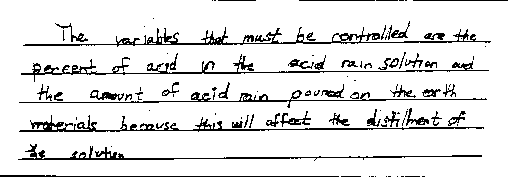 The variables that must be controlled are the
percent of acid in the acid rain solution and
the amount of acid rain poured on the earth
materials because this will affect the distilment of
the solution